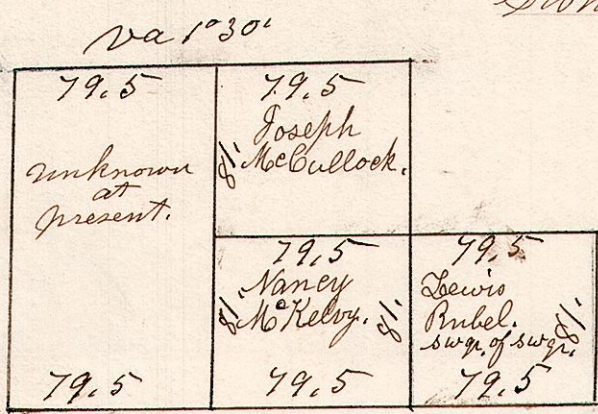 va 1° 30'
79.5
unknown
at
present.
79.5
79.5
Joseph
McCullock.
81.
79.5
Nancy
McKelvy.
81.
81.
79.5
79.5
Lewis
Rubel.
swqr. of swqr.
81.
79.5